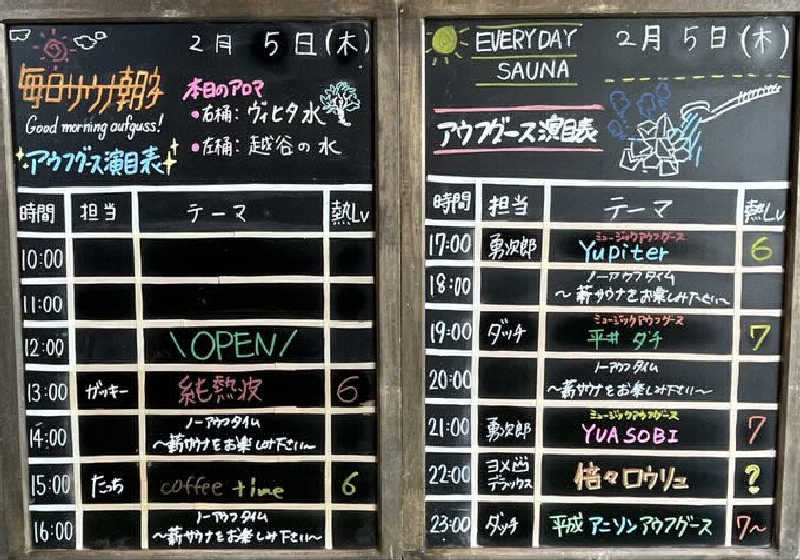 2月 5日(木)
毎日サウナ朝子
Good morning aufguss!
アウフグース演目表
本日のアロマ
●右桶: ヴィヒタ水
●左桶: 越谷の水
時間 担当 テーマ 熱Lv
10:00
11:00
12:00 \OPEN/
13:00 ガッキー 純熱波 6
14:00 ノーアウフタイム
〜薪サウナをお楽しみ下さい〜
15:00 たっち coffee time 6
16:00 ノーアウフタイム
〜薪サウナをお楽しみ下さい〜
EVERYDAY
SAUNA
2月 5日(木)
アウフグース演目表
時間 担当 テーマ 熱Lv
17:00 勇次郎 ミュージックアウフグース
Yupiter 6
18:00 ノーアウフタイム
〜薪サウナをお楽しみ下さい〜
19:00 ダッチ ミュージックアウフグース
平井 ダチ 7
20:00 ノーアウフタイム
〜薪サウナをお楽しみ下さい〜
21:00 勇次郎 ミュージックアウフグース
YUASOBI 7
22:00 デラックス 倍々ロウリュ ?
23:00 ダッチ 平成 アニソンアウフグース 7〜